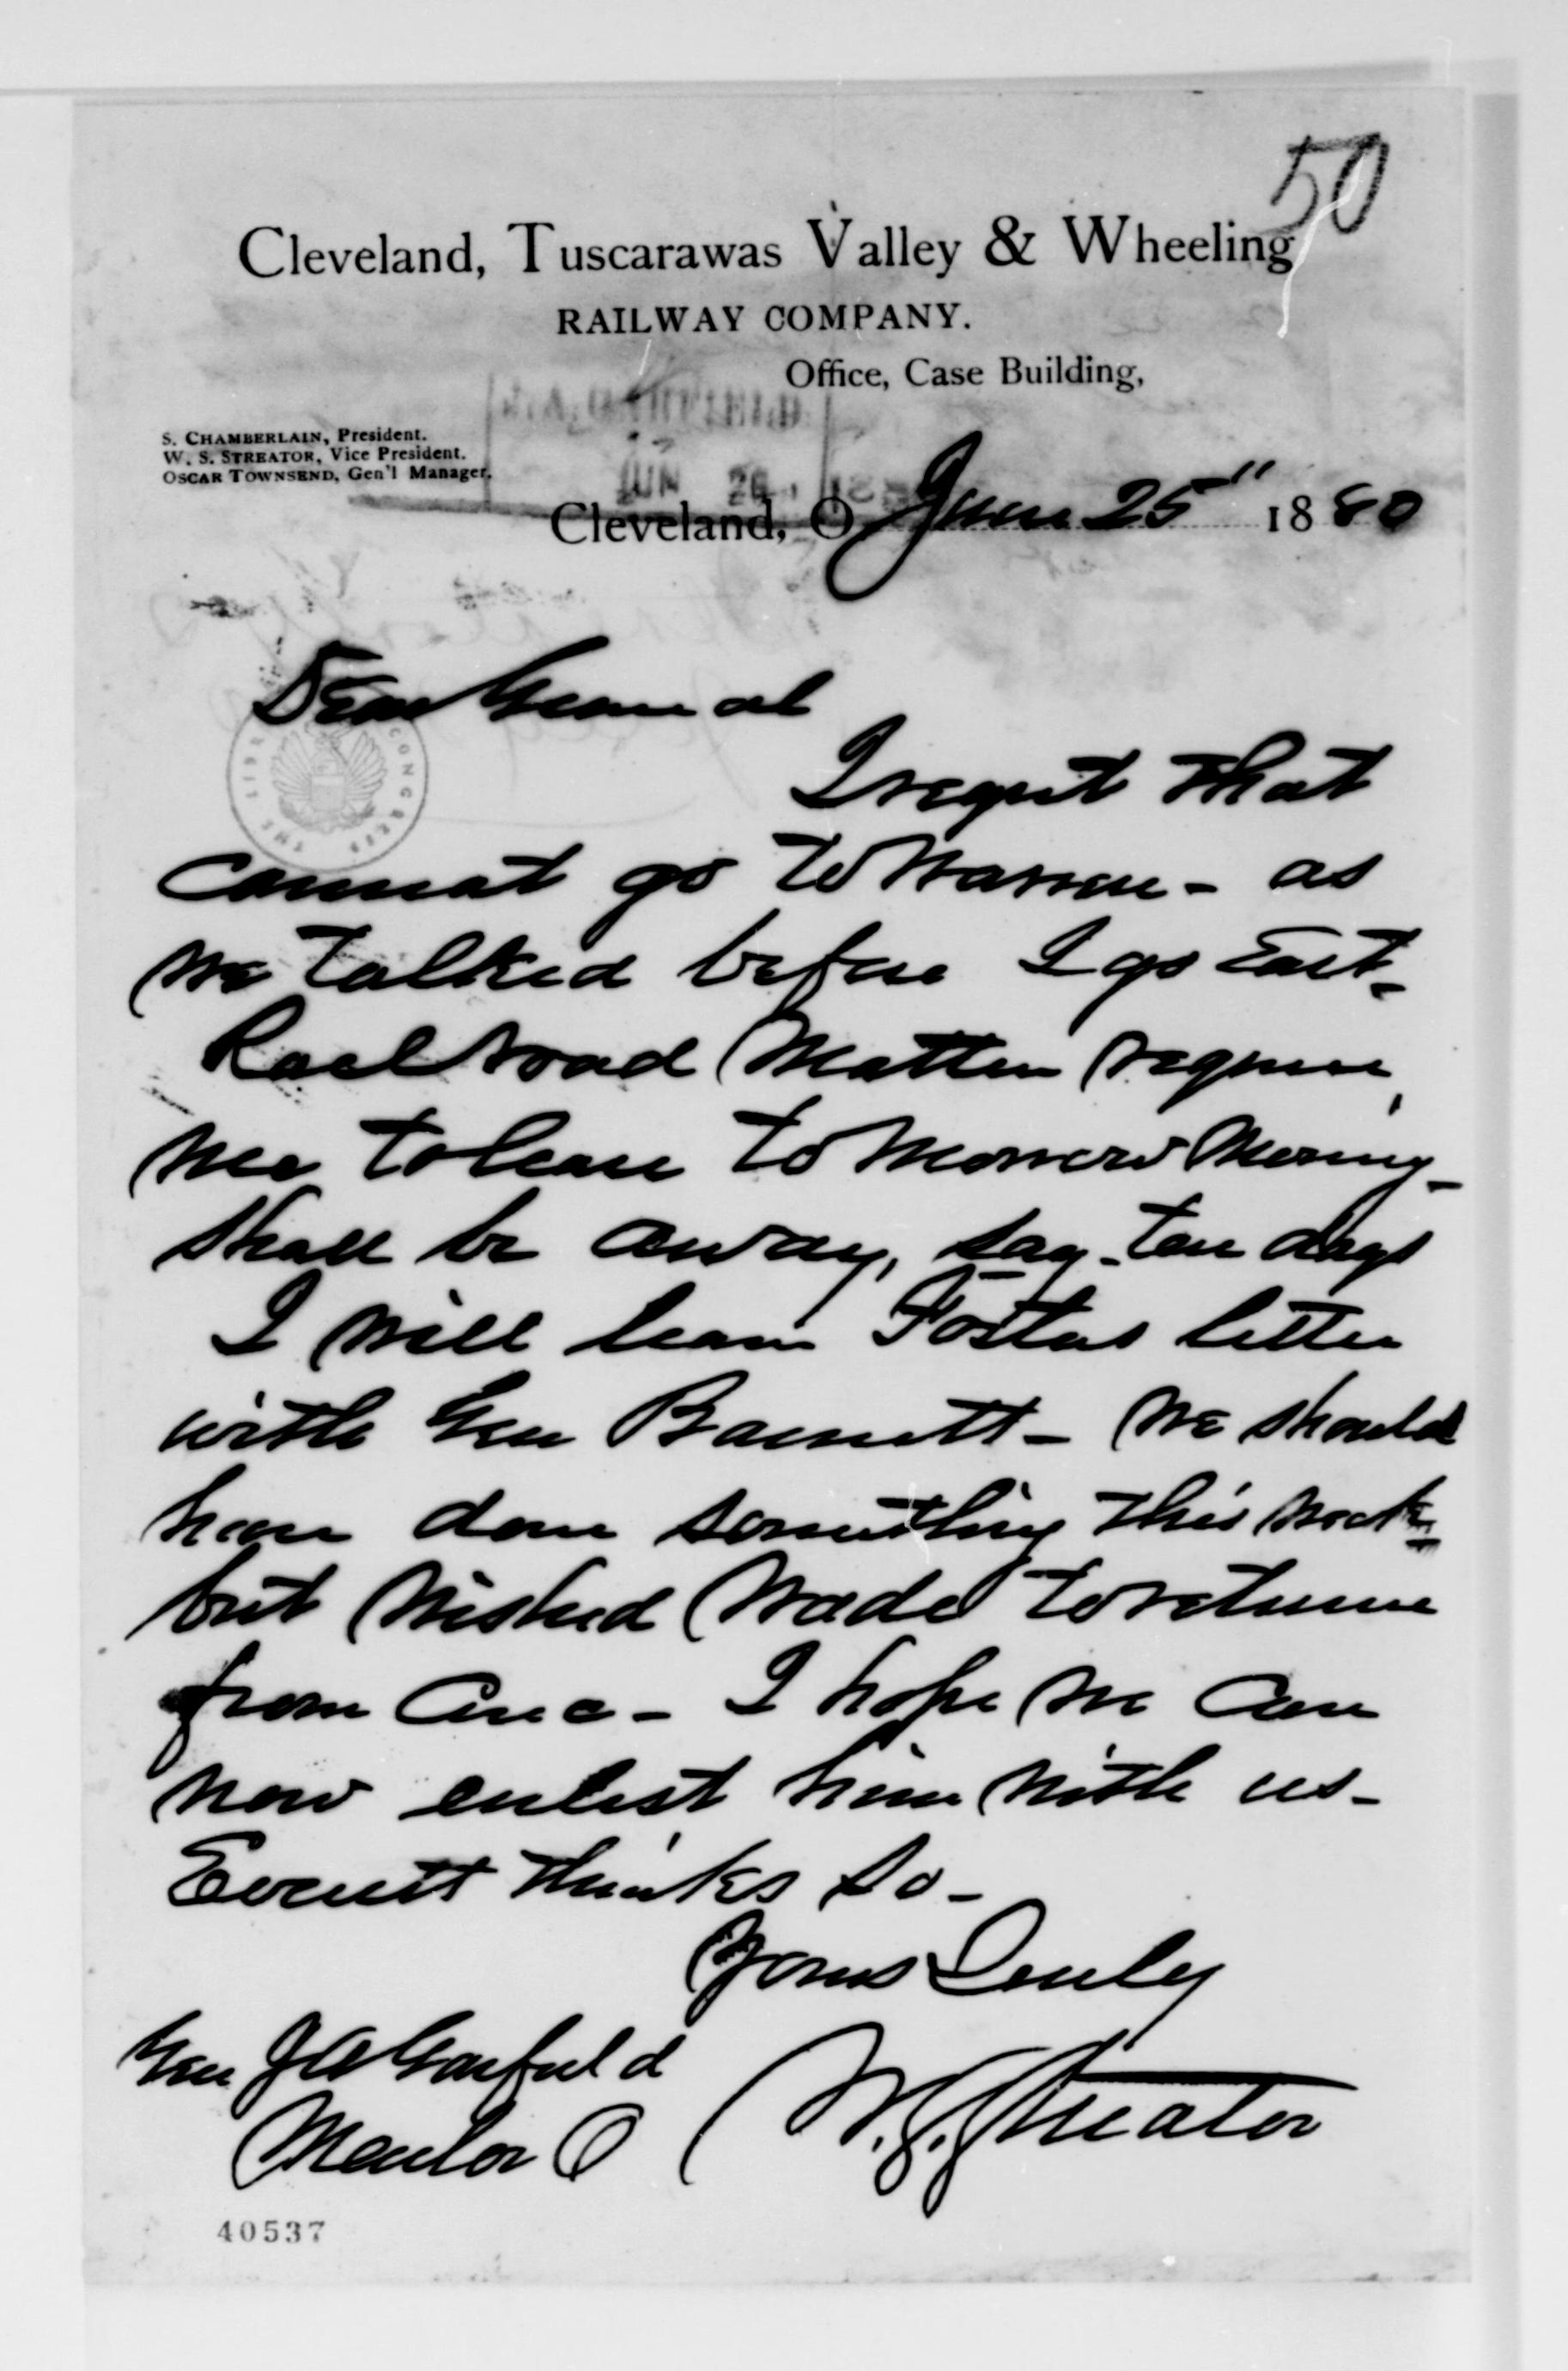 50
Cleveland, Tuscarawas Valley & Wheeling
RAILWAY COMPANY.
Office, Case Building,
J. A. GARFIELD
S. CHAMBERLAIN, President.
W. S. STREATOR, Vice President.
OSCAR TOWNSEND, Gen'l Manager.
JUN 26 188
Cleveland, O. June 25" 1880
Dear General
I regret that
cannot go to Warren - as
we talked before I go East -
Rail road Matters require
me to leave tomorrow Morning -
shall be away, say - ten days
I will leave Fosters letter
with Gen Barnett - we should
have done something this week -
but wished Wade to return
from Cinc - I hope we can
now enlist him with us -
Everett thinks so -
Yours Truly
W. S. Streator
Gen J A Garfield
Mentor O
THE LIBRARY CONGRESS
40537